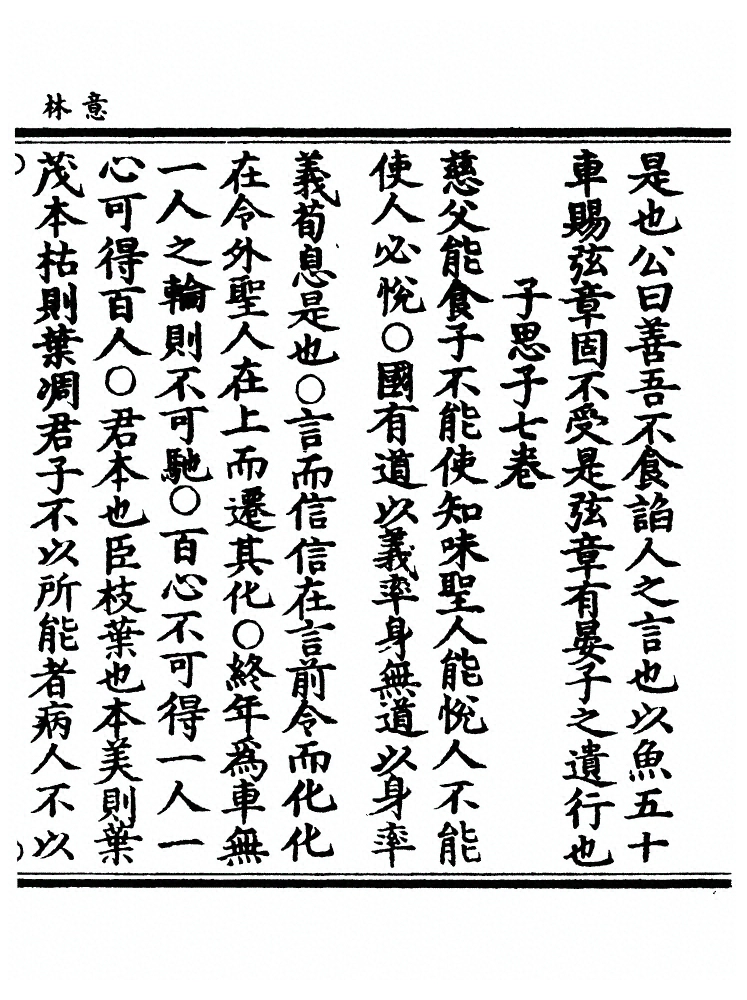 意林
是也公曰善吾不食諂人之言也以魚五十
車賜弦章固不受是弦章有晏子之遺行也
子思子七卷
慈父能食子不能使知味聖人能悅人不能
使人必悅○國有道以義率身無道以身率
義荀息是也○言而信信在言前令而化化
在令外聖人在上而遷其化○終年爲車無
一人之輪則不可馳○百心不可得一人一
心可得百人○君本也臣枝葉也本美則葉
茂本枯則葉凋君子不以所能者病人不以